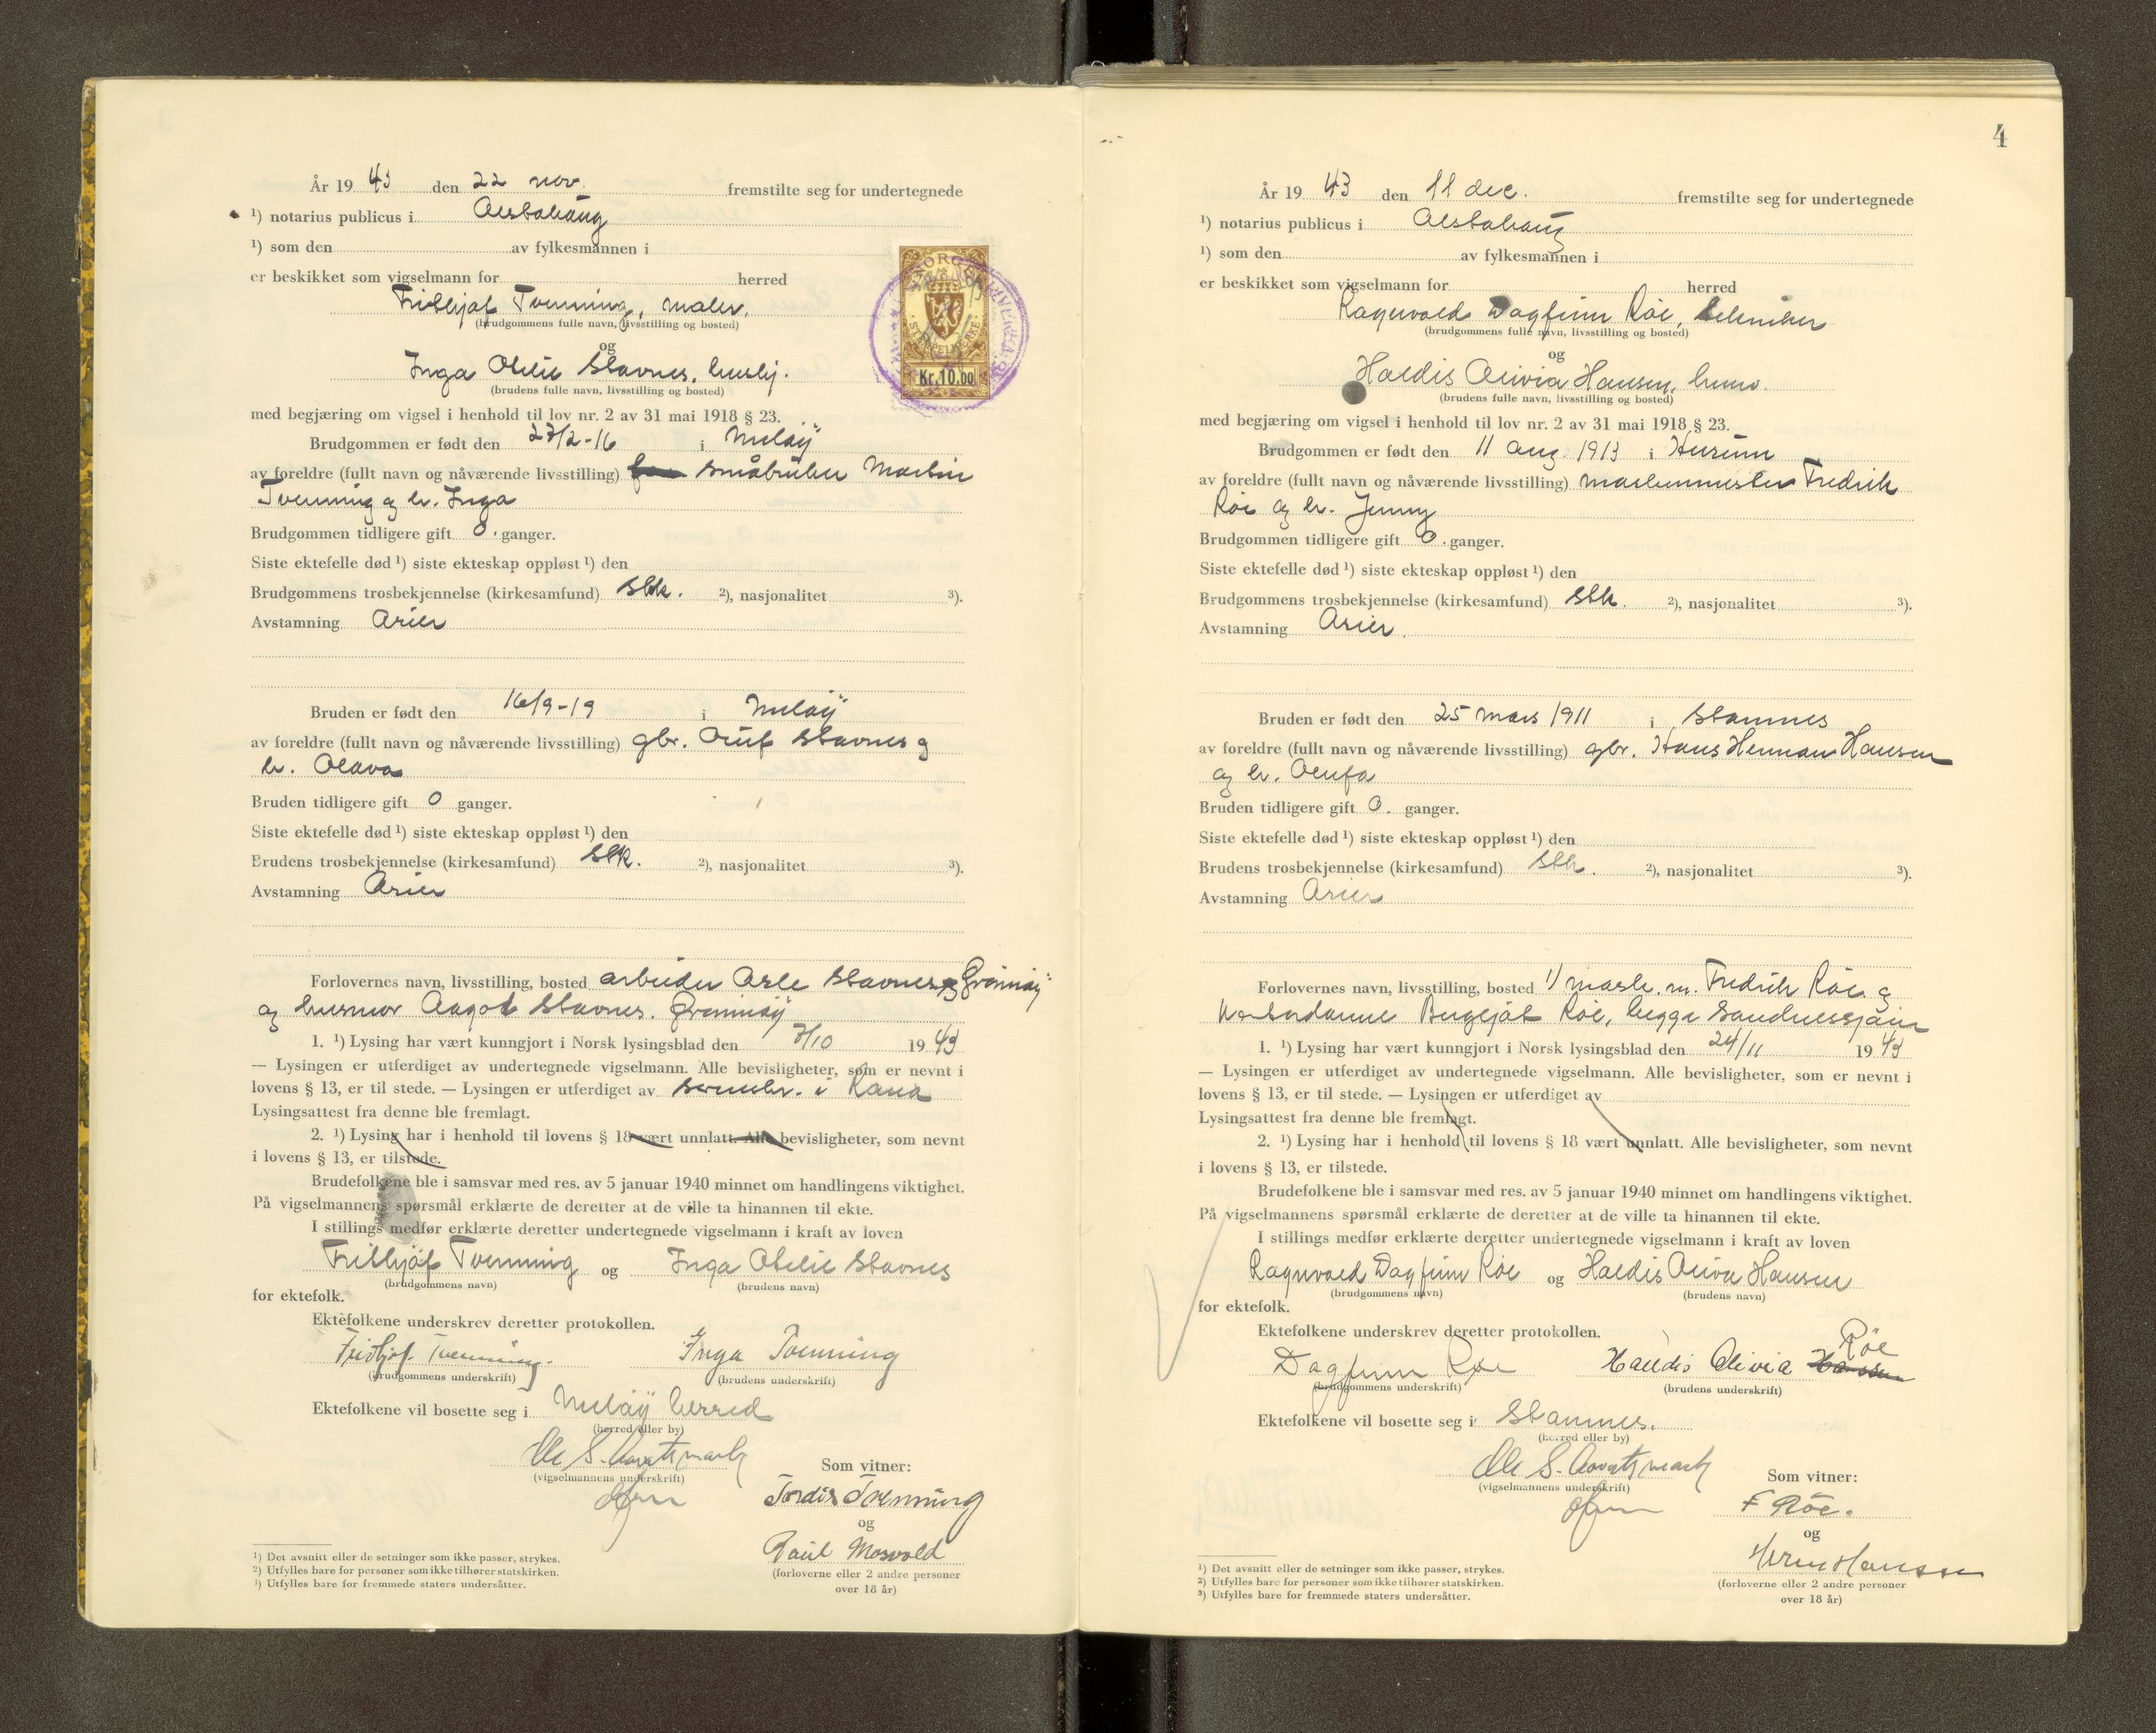 År 19 43 den 22 nov. fremstilte seg for undertegnede
¹) notarius publicus i Alstahaug
¹) som den av fylkesmannen i
er beskikket som vigselmann for herred
Fridtjof Tvenning, maler.
(brudgommens fulle navn, livsstilling og bosted)
og
Inga Otelie Stavnes, hushj.
(brudens fulle navn, livsstilling og bosted)
Kr. 10.00
med begjæring om vigsel i henhold til lov nr. 2 av 31 mai 1918 § 23.
Brudgommen er født den 27/2-16 i Meløy
av foreldre (fullt navn og nåværende livsstilling) småbruker Martin
Tvenning og h. Inga
Brudgommen tidligere gift 0. ganger.
Siste ektefelle død ¹) siste ekteskap oppløst ¹) den
Brudgommens trosbekjennelse (kirkesamfund) stk. ²), nasjonalitet ³).
Avstamning Arier
Bruden er født den 16/9-19 i Meløy
av foreldre (fullt navn og nåværende livsstilling) gbr. Oluf Stavnes og
h. Olava
Bruden tidligere gift 0 ganger.
Siste ektefelle død ¹) siste ekteskap oppløst ¹) den
Brudens trosbekjennelse (kirkesamfund) stk. ²), nasjonalitet ³).
Avstamning Arier
Forlovernes navn, livsstilling, bosted arbeider Asle Stavnes, Grønøy
og husmor Aagot Stavnes. Grønøy
1. ¹) Lysing har vært kunngjort i Norsk lysingsblad den 7/10 19 43
— Lysingen er utferdiget av undertegnede vigselmann. Alle bevisligheter, som er nevnt i
lovens § 13, er til stede. — Lysingen er utferdiget av sorenskr. i Rana
Lysingsattest fra denne ble fremlagt.
2. ¹) Lysing har i henhold til lovens § 18 vært unnlatt. Alle bevisligheter, som nevnt
i lovens § 13, er tilstede.
Brudefolkene ble i samsvar med res. av 5 januar 1940 minnet om handlingens viktighet.
På vigselmannens spørsmål erklærte de deretter at de ville ta hinannen til ekte.
I stillings medfør erklærte deretter undertegnede vigselmann i kraft av loven
Fridtjof Tvenning og Inga Otelie Stavnes
(brudgommens navn) (brudens navn)
for ektefolk.
Ektefolkene underskrev deretter protokollen.
Fridtjof Tvenning. Inga Tvenning
(brudgommens underskrift) (brudens underskrift)
Ektefolkene vil bosette seg i Meløy herred
(herred eller by)
Ole S. Aavatsmark
(vigselmannens underskrift)
Som vitner:
Tordis Tvenning
og
Paul Mosvold
(forloverne eller 2 andre personer
over 18 år)
¹) Det avsnitt eller de setninger som ikke passer, strykes.
²) Utfylles bare for personer som ikke tilhører statskirken.
³) Utfylles bare for fremmede staters undersåtter.
4
År 19 43 den 11 dec. fremstilte seg for undertegnede
¹) notarius publicus i Alstahaug
¹) som den av fylkesmannen i
er beskikket som vigselmann for herred
Ragnvald Dagfinn Røe, tekniker
(brudgommens fulle navn, livsstilling og bosted)
og
Haldis Olivia Hansen, husm.
(brudens fulle navn, livsstilling og bosted)
med begjæring om vigsel i henhold til lov nr. 2 av 31 mai 1918 § 23.
Brudgommen er født den 11 aug. 1913 i Hurum
av foreldre (fullt navn og nåværende livsstilling) maskinmester Fredrik
Røe og h. Jenny
Brudgommen tidligere gift 0. ganger.
Siste ektefelle død ¹) siste ekteskap oppløst ¹) den
Brudgommens trosbekjennelse (kirkesamfund) stk. ²), nasjonalitet ³).
Avstamning Arier.
Bruden er født den 25 mars 1911 i Stamnes
av foreldre (fullt navn og nåværende livsstilling) gbr. Hans Herman Hansen
og h. Olufa
Bruden tidligere gift 0. ganger.
Siste ektefelle død ¹) siste ekteskap oppløst ¹) den
Brudens trosbekjennelse (kirkesamfund) stk. ²), nasjonalitet ³).
Avstamning Arier
Forlovernes navn, livsstilling, bosted 1/ mask. m. Fredrik Røe og
kontordame Bergljot Røe, begge Sandnessjøen
1. ¹) Lysing har vært kunngjort i Norsk lysingsblad den 24/11 19 43
— Lysingen er utferdiget av undertegnede vigselmann. Alle bevisligheter, som er nevnt i
lovens § 13, er til stede. — Lysingen er utferdiget av
Lysingsattest fra denne ble fremlagt.
2. ¹) Lysing har i henhold til lovens § 18 vært unnlatt. Alle bevisligheter, som nevnt
i lovens § 13, er tilstede.
Brudefolkene ble i samsvar med res. av 5 januar 1940 minnet om handlingens viktighet.
På vigselmannens spørsmål erklærte de deretter at de ville ta hinannen til ekte.
I stillings medfør erklærte deretter undertegnede vigselmann i kraft av loven
Ragnvald Dagfinn Røe og Haldis Olivia Hansen
(brudgommens navn) (brudens navn)
for ektefolk.
Ektefolkene underskrev deretter protokollen.
Dagfinn Røe Haldis Olivia Hansen Röe
(brudgommens underskrift) (brudens underskrift)
Ektefolkene vil bosette seg i Stamnes.
(herred eller by)
Ole S. Aavatsmark
(vigselmannens underskrift)
Som vitner:
F Röe.
og
Herm Hanssen
(forloverne eller 2 andre personer
over 18 år)
¹) Det avsnitt eller de setninger som ikke passer, strykes.
²) Utfylles bare for personer som ikke tilhører statskirken.
³) Utfylles bare for fremmede staters undersåtter.